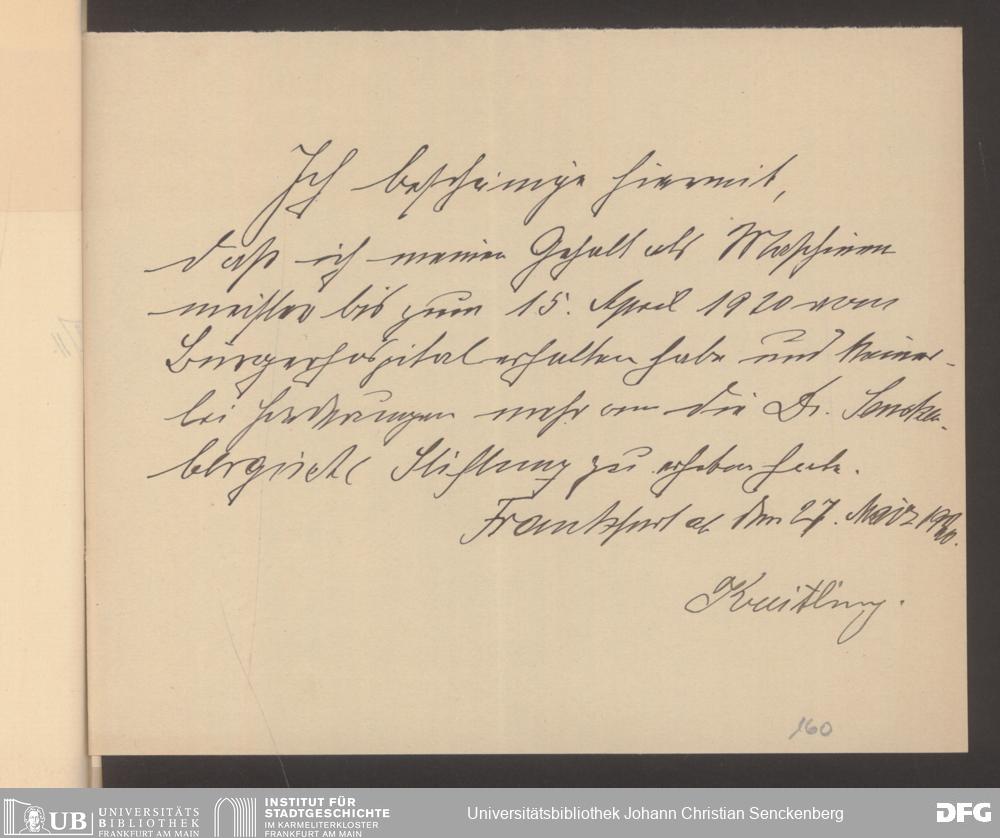 Ich bescheinige hiermit,
daß ich meinen Gehalt als Maschinen
meister bis zum 15. April 1920 vom
Bürgerhospital erhalten habe und keiner-
lei Forderungen mehr an die Dr. Sencken-
bergische Stiftung zu erheben habe.
Frankfurt a/M den 27. März 1920.
Kreitling.
160
UB UNIVERSITÄTS
BIBLIOTHEK
FRANKFURT AM MAIN
INSTITUT FÜR
STADTGESCHICHTE
IM KARMELITERKLOSTER
FRANKFURT AM MAIN
Universitätsbibliothek Johann Christian Senckenberg
DFG